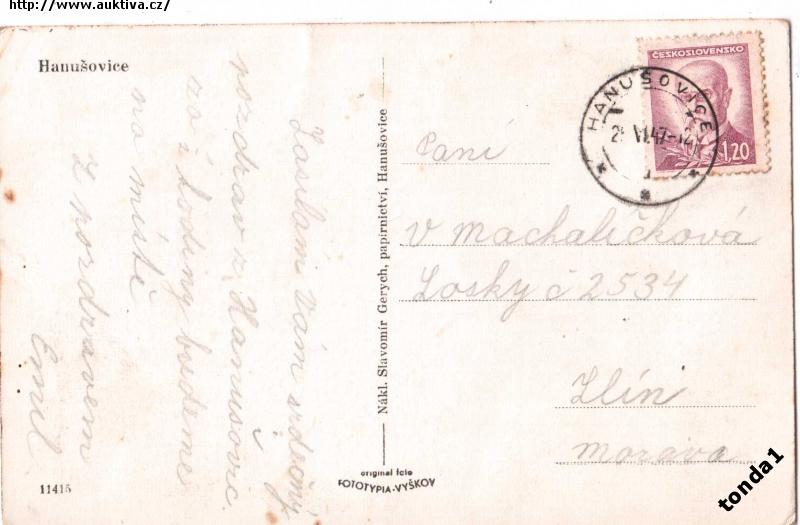 http://www.auktiva.cz/
Hanušovice
ČESKOSLOVENSKO
1,20
HANUŠOVICE
VI.47-12
Zasílám Vám srdečný
pozdrav z Hanušovic.
za ½ hodiny budeme
na místě.
Z pozdravem
Emil
Nákl. Slavomír Gerych, papírnictví, Hanušovice
Paní
V Machalíčková
Losky č 2534
Zlín
Morava
11415
original foto
FOTOTYPIA-VYŠKOV
tonda1